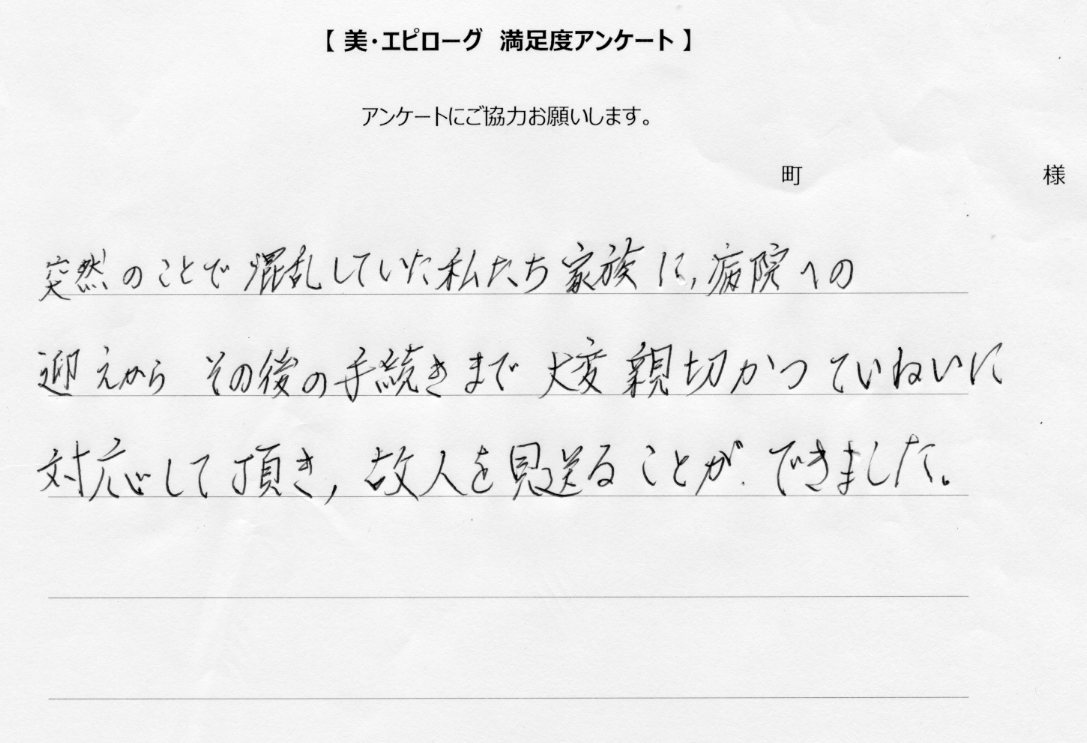 【 美・エピローグ 満足度アンケート 】
アンケートにご協力お願いします。
町 様
突然のことで混乱していた私たち家族に、病院への
迎えからその後の手続きまで大変親切かつていねいに
対応して頂き、故人を見送ることができました。